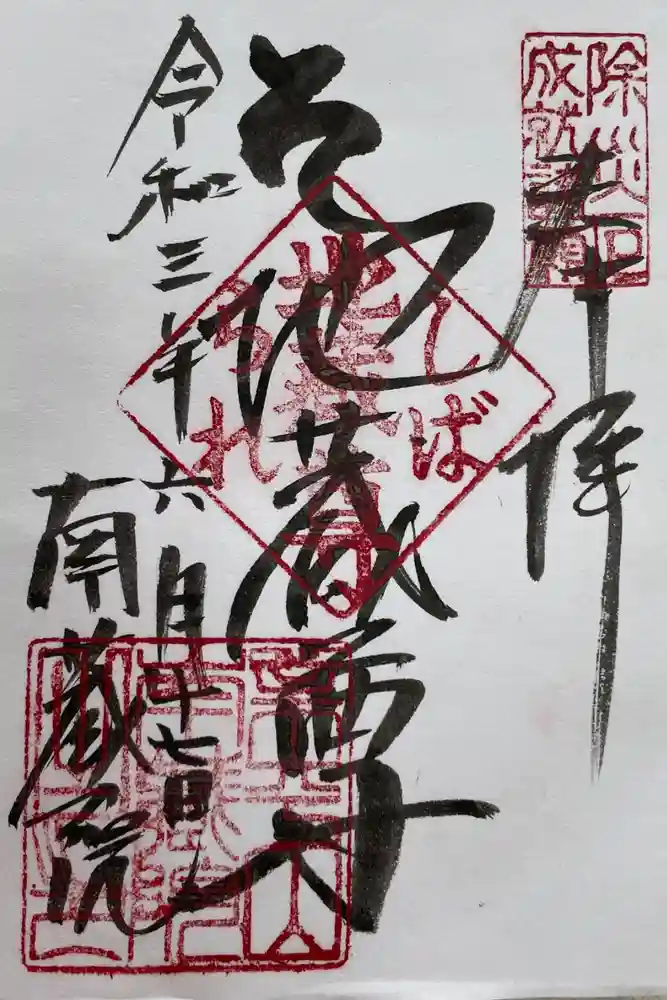 除災厄
成就諸願
奉拝
しば
地蔵尊
られ
地蔵尊
令和三年六月十七日
南蔵院